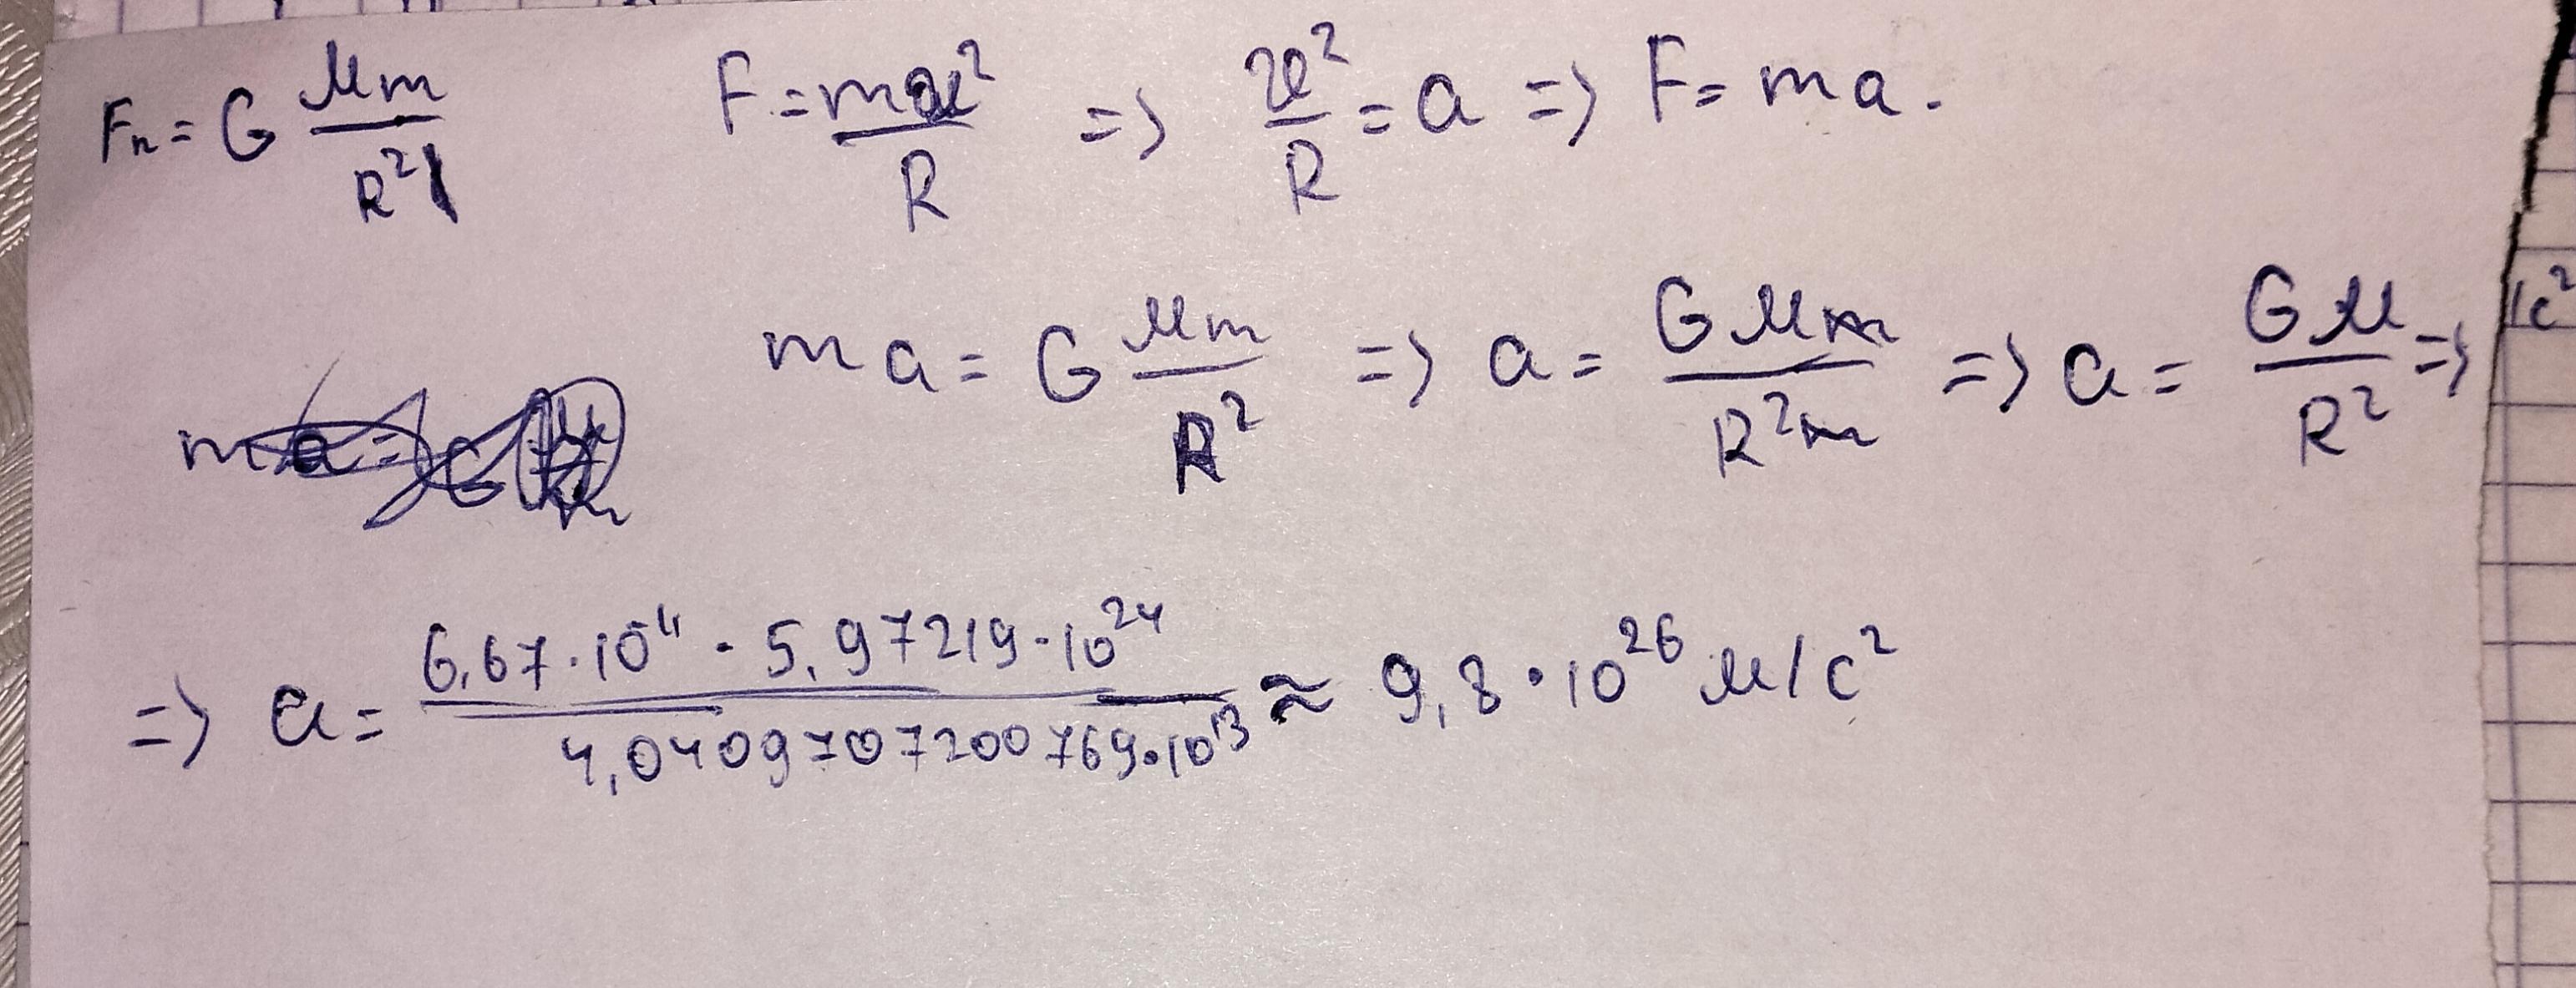 Fₙ = G Mm/R² F = mv²/R => v²/R = a => F = ma.
ma = G Mm/R² => a = GMm/R²m => a = GM/R² =>
/c²
=> a = 6,67·10¹¹ · 5,97219·10²⁴ / 4,0409707200769·10¹³ ≈ 9,8·10²⁶ м/с²